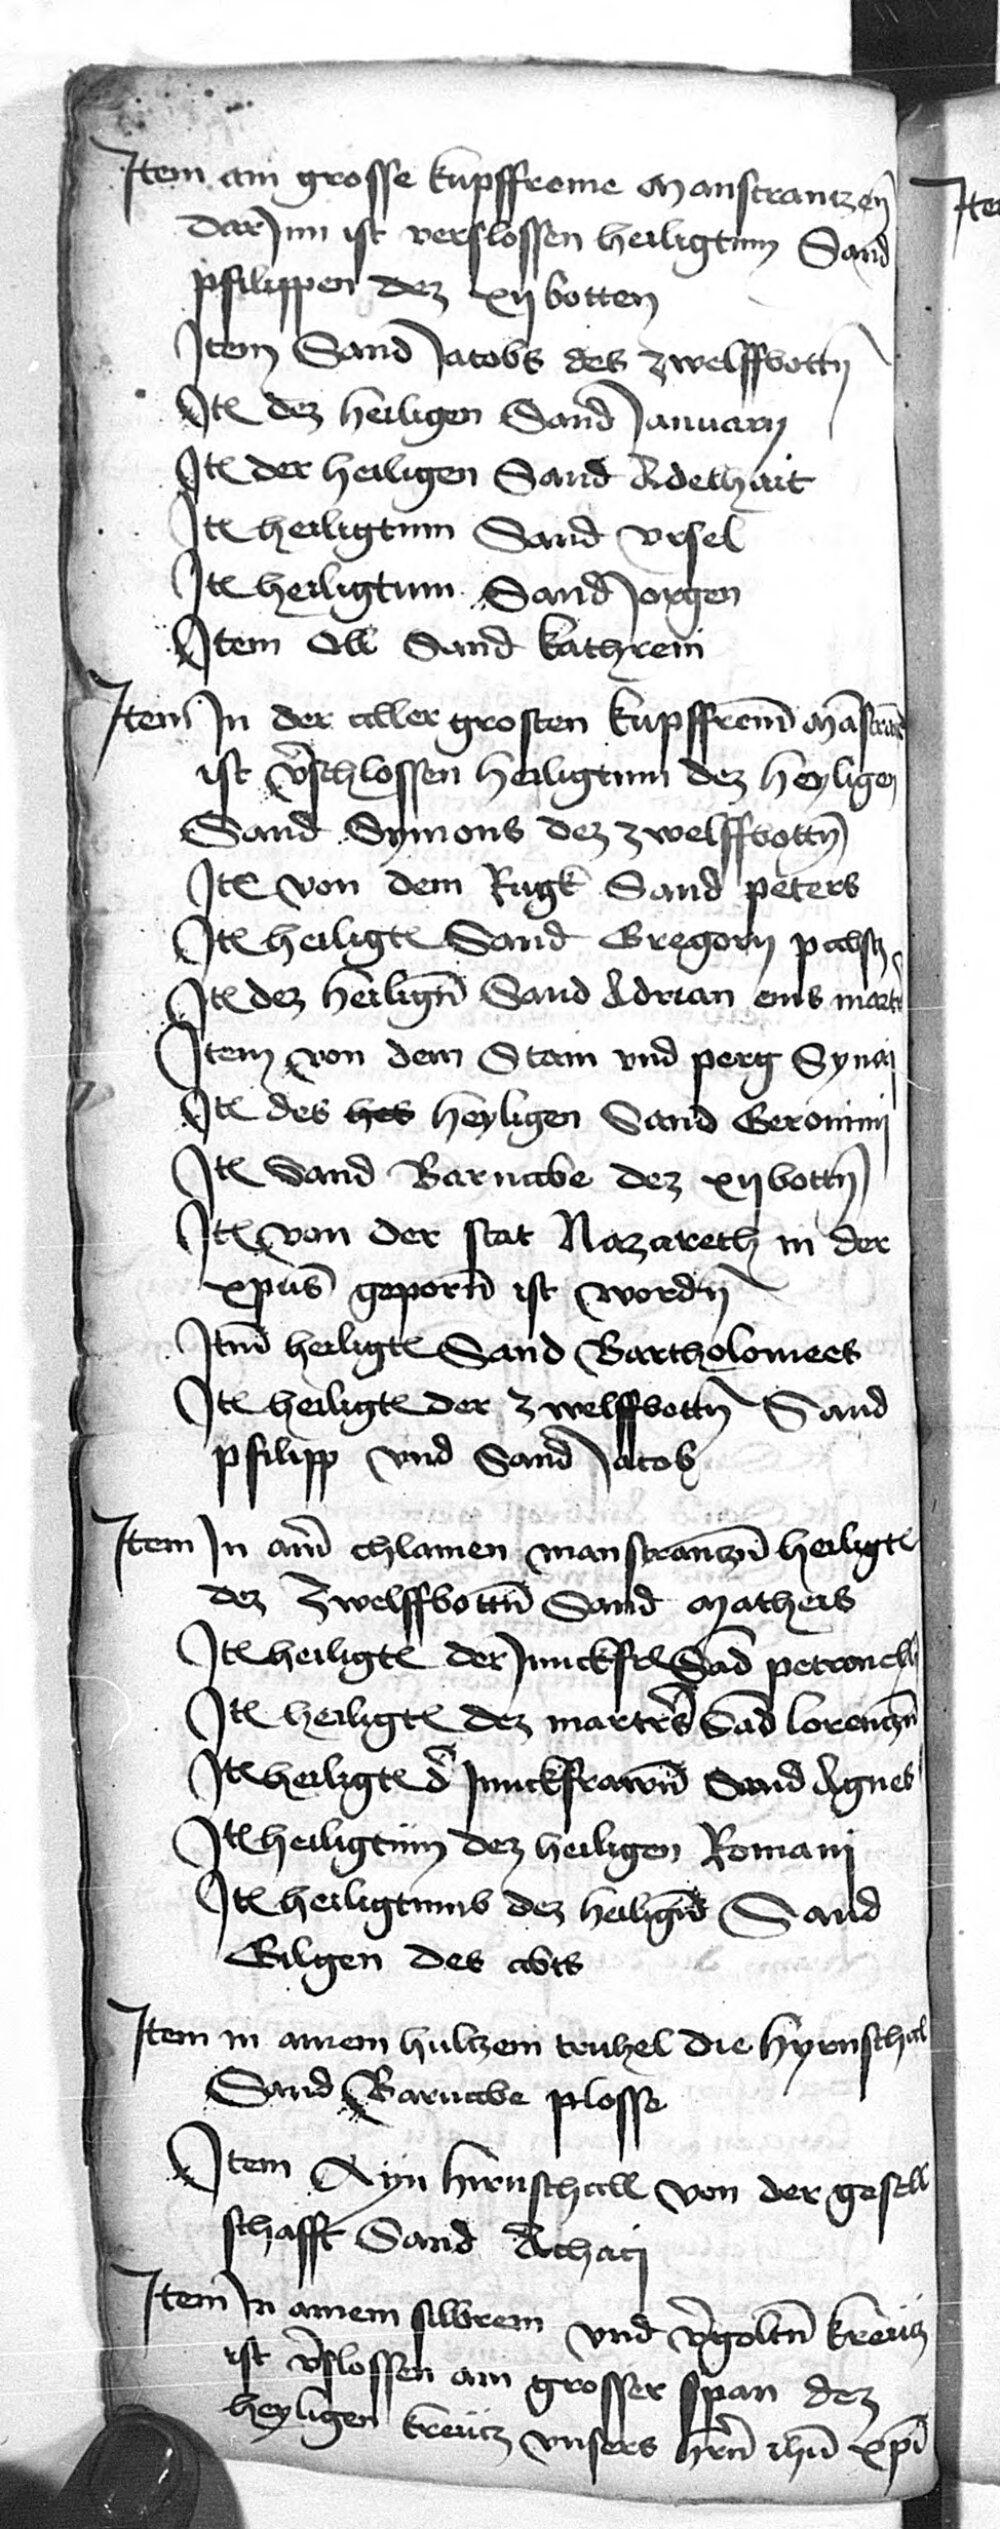 Item ain grosse kupffrome Manstrantzen
dar Inn ist verslossen heiligtum Sand
philippen dez xij botten
Item Sand Jacobs des zwelffbottn
Itē dez heiligen Sand Januarij
Itē der heiligen Sand Adelhait
Itē heiligtum Sand vrsel
Itē heiligtum Sand Jorgen
Item Oll Sand kathrein
Item In der aller grosten kupffrem̄ Māstrancz
ist v̄schlossen heiligtum dez heyligen
Sand Symons dez zwelffbottn̄
Itē von dem Rugk Sand peters
Itē heiligtē Sand Gregorij pabstz
Itē dez heilign̄ Sand Adrian eins martr̄
Item von dem Stain vnd perg Synaj
Itē des hes heyligen Sand Geronimj
Itē Sand Barnabe dez xij bottn̄
Itē von der stat Nazareth in der
xpūs geporn̄ ist wordn̄
Itm̄ heiligtē Sand Bartholomees
Itē heiligtē der zwelffbottn̄ Sand
philipp vnd Sand Jacob
Item In aim̄ chlainen manstrantzn̄ heiligtē
dez Zwelffbottn̄ Sand Matheis
Itē heiligtē der Junckfr̄ Sād petronell
Itē heiligtē dez martrs̄ Sād lorenczn̄
Itē heiligtē d̄ Junckfrawn̄ Sand Agnes
Itē heiligtum dez heiligen Romanj
Itē heiligtumb dez heilign̄ Sand
Gilgen des abts
Item in ainem hultzein truhel die hyrnschal
Sand Barnabe plosse
Item Ayn hirnschall von der gesell
schafft Sand Achacij
Item In ainem silbrem vnd v̄goltn̄ kreütz
ist v̄slossen ain grosser span dez
heyligen kreütz vnsers hr̄n ihū xpī
Ite